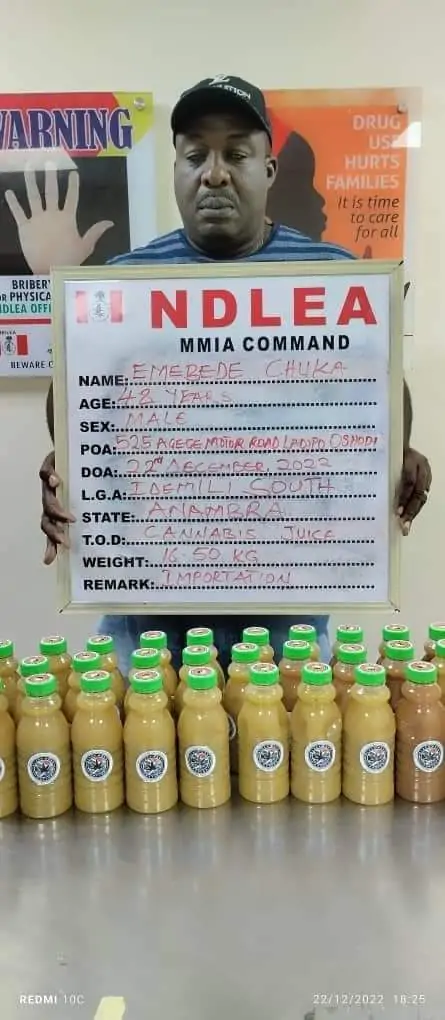 WARNING
BRIBERY
OR PHYSICA
NDLEA OFFI
BEWARE
DRUG
USE
HURTS
FAMILIES
It is time
to care
for all
NDLEA
MMIA COMMAND
NAME: EMEBEDE CHUKA
AGE: 48 YEARS
SEX: MALE
POA: 525 AGEGE MOTOR ROAD LADIPO OSHODI
DOA: 22nd DECEMBER, 2022
L.G.A: IDEMILI SOUTH
STATE: ANAMBRA
T.O.D: CANNABIS JUICE
WEIGHT: 16.50 KG
REMARK: IMPORTATION
REDMI 10C
22/12/2022 18:25